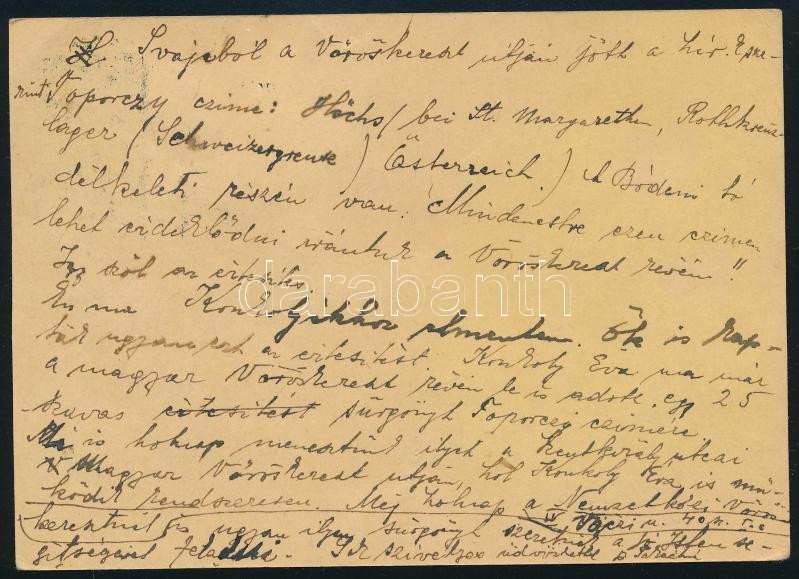 Svájcból a Vöröskereszt útján jött a hír. Esze-
rint Toporczy czime: Höchs / bei St. Margarethen, Rothkreuz-
lager (Schweizergrenze) Österreich.) A Bódeni tó
délkeleti részén van. Mindenestre ezen czimen
lehet érdeklődni irántuk a Vöröskereszt révén."
Igy szól az értesítés.
Én ma Konkolyékhoz elmentem. Ők is kap-
ták ugyanezt az értesítést. Konkoly Éva ma már
a magyar Vöröskereszt révén le is adott egy 25
szavas értesítést sürgönyt Toporczi czimére.
Mi is holnap menesztünk ilyet a Szentkirály utcai
Magyar Vöröskereszt utján, hol Konkoly Éva is mü-
ködik rendszeresen. Még holnap a Nemzetközi Vörös-
IV Váczi u. 40
keresztnél is ugyan ilyen sürgönyt szeretnék a jó Isten se-
gitségével feladni. Sok szivélyes üdvözlettel
darabanth